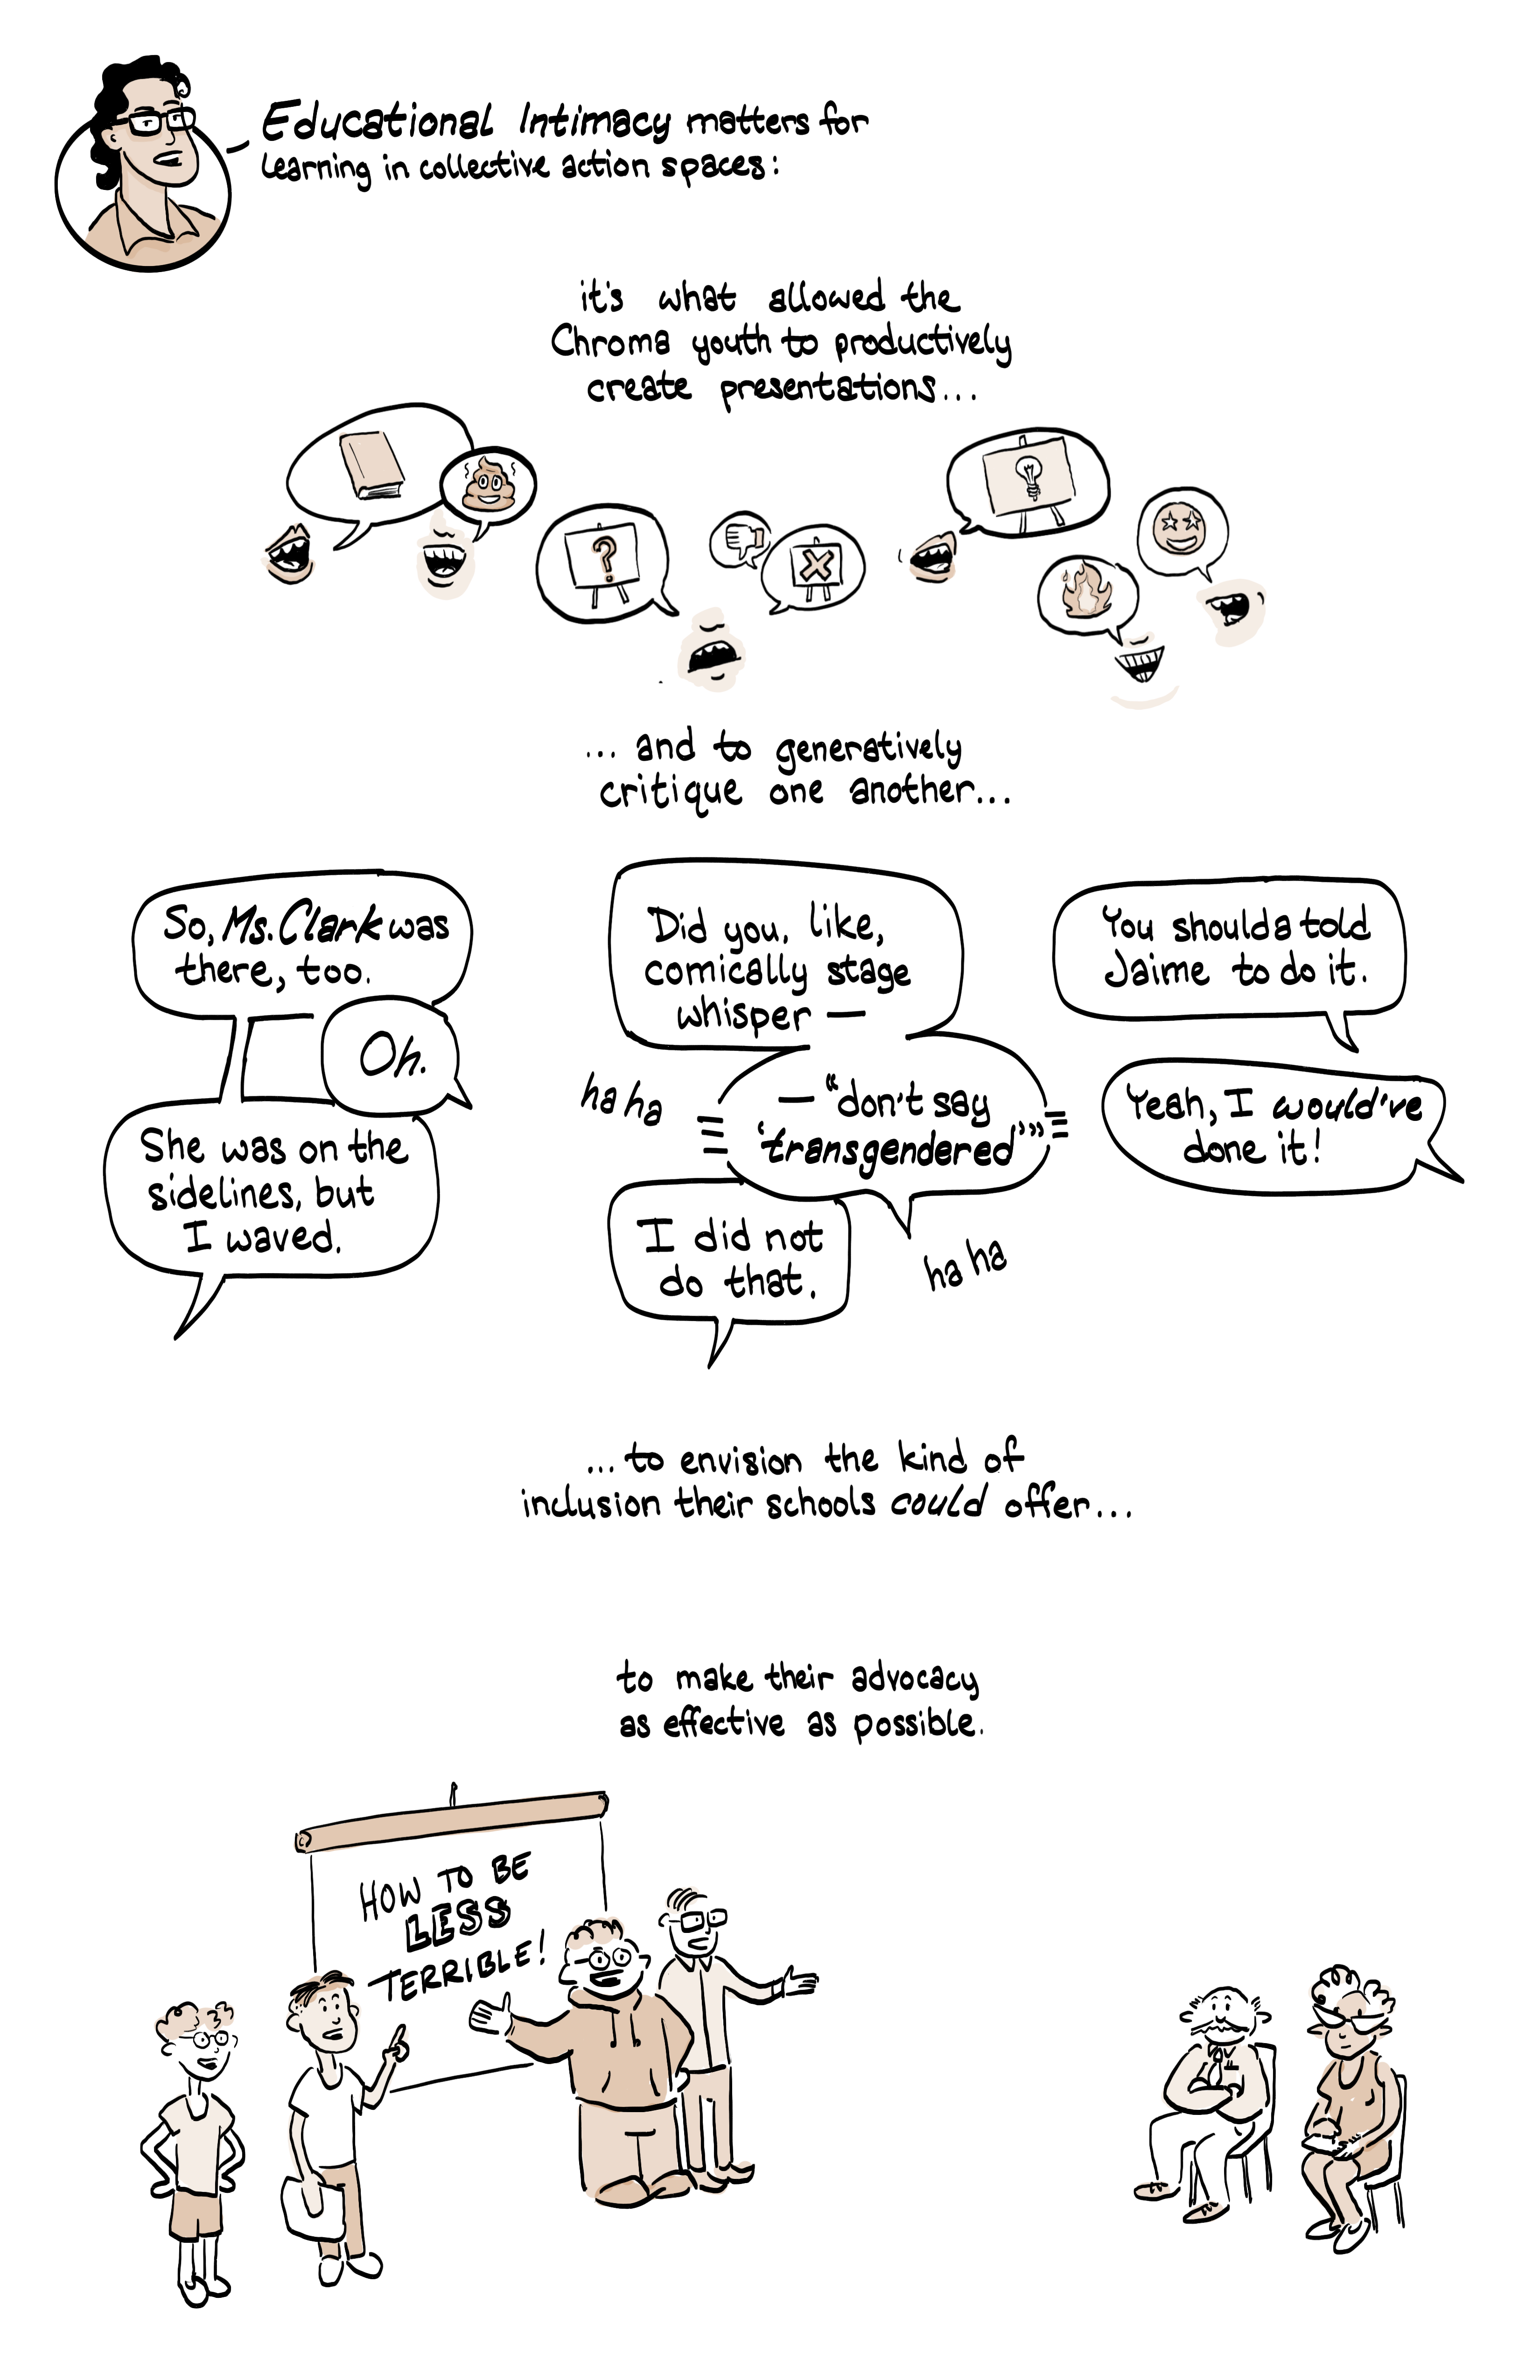 Educational Intimacy matters for
learning in collective action spaces:
it's what allowed the
Chroma youth to productively
create presentations...
?
... and to generatively
critique one another...
So, Ms. Clark was
there, too.
Oh.
She was on the
sidelines, but
I waved.
Did you, like,
comically stage
whisper —
— "don't say
'transgendered'"
ha ha
I did not
do that.
ha ha
You shoulda told
Jaime to do it.
Yeah, I would've
done it!
... to envision the kind of
inclusion their schools could offer...
to make their advocacy
as effective as possible.
HOW TO BE
LESS
TERRIBLE!